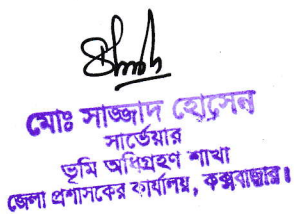 মোঃ সাজ্জাদ হোসেন
সার্ভেয়ার
ভূমি অধিগ্রহণ শাখা
জেলা প্রশাসকের কার্যালয়, কক্সবাজার।